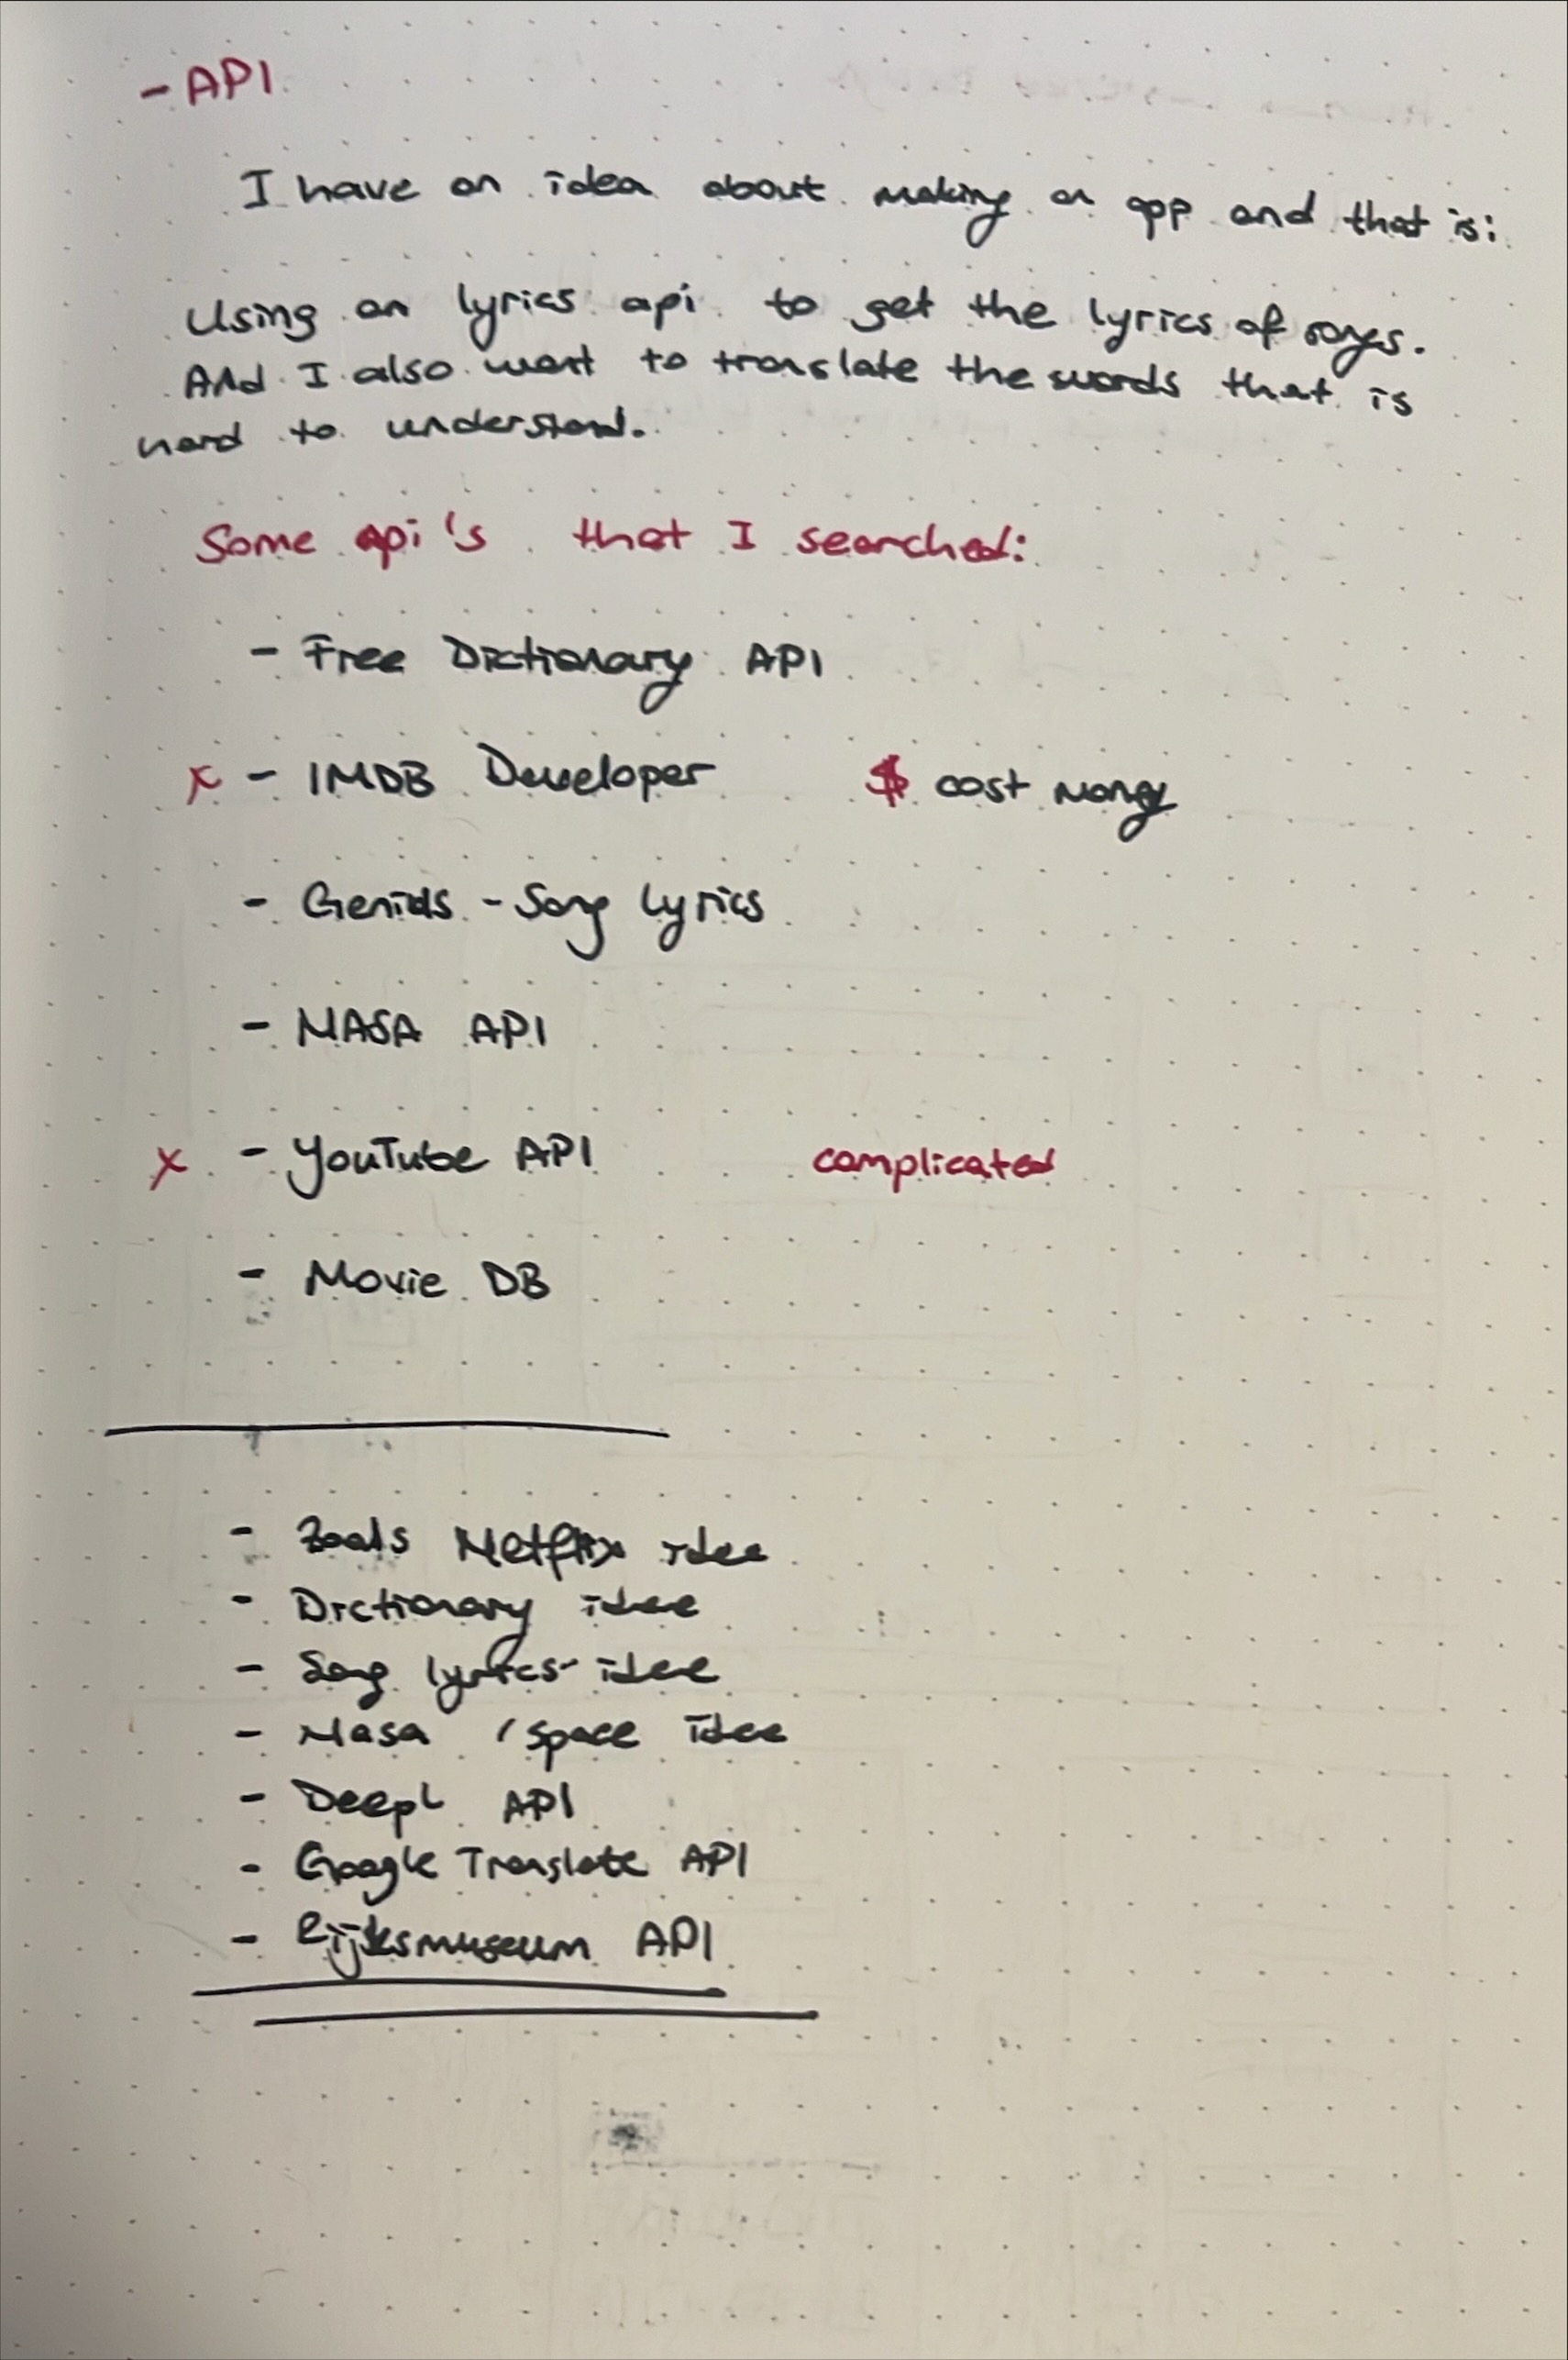 - API
I have an idea about making an app and that is:
Using an lyrics api to get the lyrics of songs.
And I also want to translate the words that is
hard to understand.
Some api's that I searched:
- Free Dictionary API
x - IMDB Developer $ cost money
- Genius - Song lyrics
- NASA API
x - YouTube API complicated
- Movie DB
- Zoals Netflix idee
- Dictionary idee
- Song lyrics idee
- Nasa / space idee
- DeepL API
- Google Translate API
- Rijksmuseum API